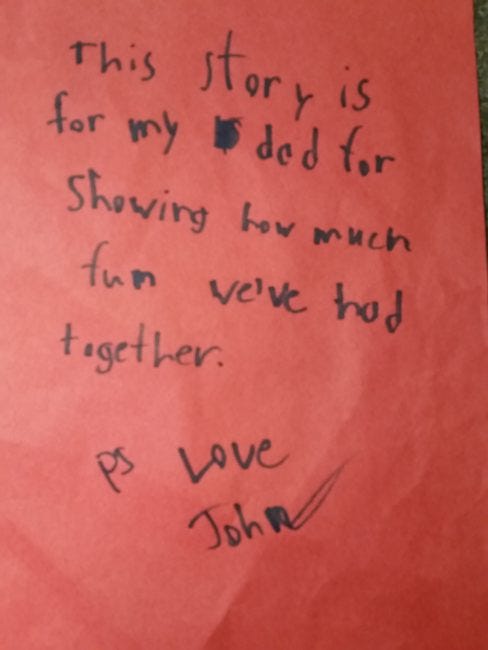 This story is
for my dad for
Showing how much
fun we've had
together.
ps Love
John